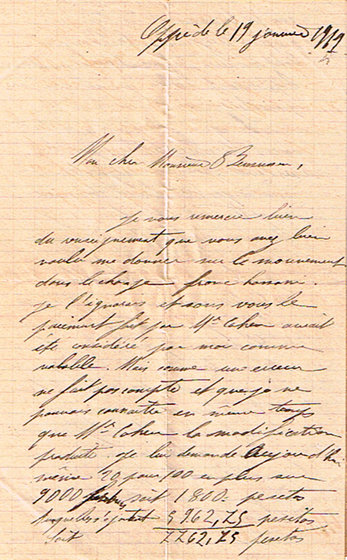 Oppède le 19 janvier 1919
Mon cher Monsieur
Je vous remercie bien
du renseignement que vous avez bien
voulu me donner sur le mouvement
dans le change franc hassani.
Je l'ignorais et sans vous le
paiement fait par Mr Cohen aurait
été considéré par moi comme
valable. Mais comme une erreur
ne fait pas compte et que je ne
pouvais connaître en même temps
que Mr Cohen la modification
produite je lui demande Aujourd'hui
même 20 pour 100 en plus sur
9000 soit 1800. pesetas
5962,25 pesetas
Soit 7762,25 pesetas